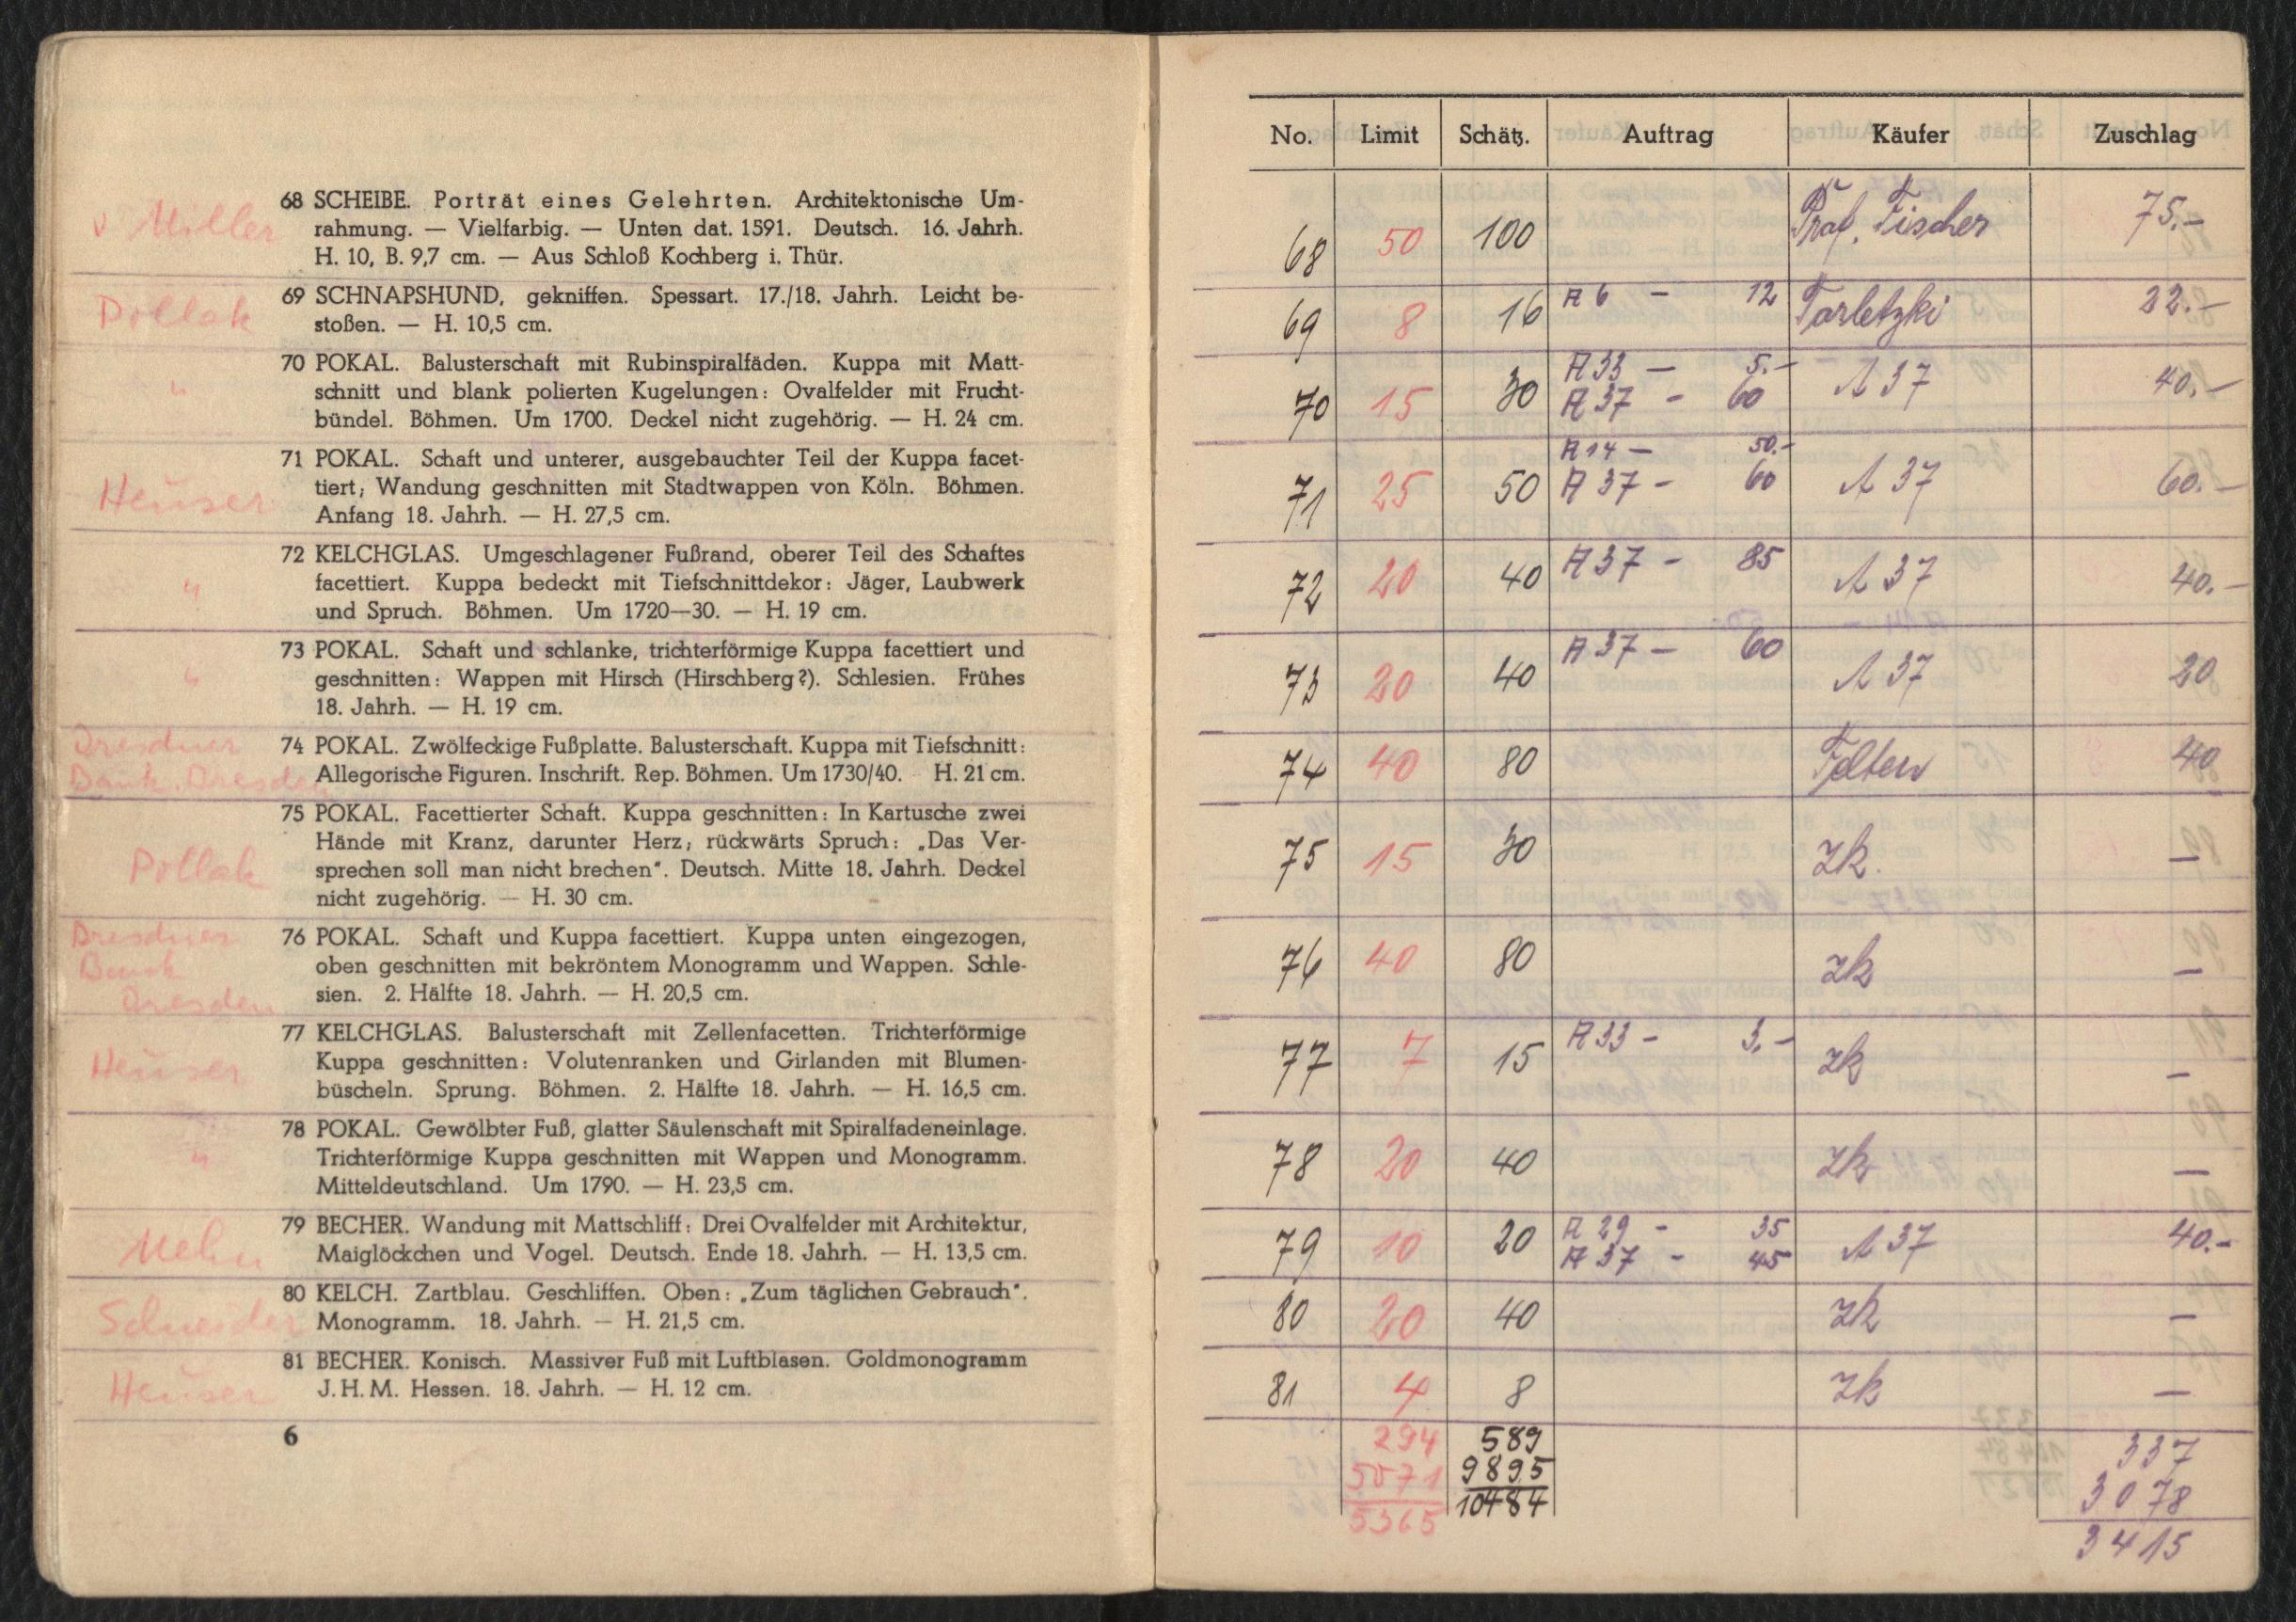 v Miller
68 SCHEIBE. Porträt eines Gelehrten. Architektonische Um-
rahmung. — Vielfarbig. — Unten dat. 1591. Deutsch. 16. Jahrh.
H. 10, B. 9,7 cm. — Aus Schloß Kochberg i. Thür.
Pollak
69 SCHNAPSHUND, gekniffen. Spessart. 17./18. Jahrh. Leicht be-
stoßen. — H. 10,5 cm.
"
70 POKAL. Balusterschaft mit Rubinspiralfäden. Kuppa mit Matt-
schnitt und blank polierten Kugelungen: Ovalfelder mit Frucht-
bündel. Böhmen. Um 1700. Deckel nicht zugehörig. — H. 24 cm.
Heuser
71 POKAL. Schaft und unterer, ausgebauchter Teil der Kuppa facet-
tiert; Wandung geschnitten mit Stadtwappen von Köln. Böhmen.
Anfang 18. Jahrh. — H. 27,5 cm.
"
72 KELCHGLAS. Umgeschlagener Fußrand, oberer Teil des Schaftes
facettiert. Kuppa bedeckt mit Tiefschnittdekor: Jäger, Laubwerk
und Spruch. Böhmen. Um 1720—30. — H. 19 cm.
"
73 POKAL. Schaft und schlanke, trichterförmige Kuppa facettiert und
geschnitten: Wappen mit Hirsch (Hirschberg?). Schlesien. Frühes
18. Jahrh. — H. 19 cm.
Dresdner
Bank. Dresden
74 POKAL. Zwölfeckige Fußplatte. Balusterschaft. Kuppa mit Tiefschnitt:
Allegorische Figuren. Inschrift. Rep. Böhmen. Um 1730/40. H. 21 cm.
Pollak
75 POKAL. Facettierter Schaft. Kuppa geschnitten: In Kartusche zwei
Hände mit Kranz, darunter Herz; rückwärts Spruch: „Das Ver-
sprechen soll man nicht brechen". Deutsch. Mitte 18. Jahrh. Deckel
nicht zugehörig. — H. 30 cm.
Dresdner
Bank
Dresden
76 POKAL. Schaft und Kuppa facettiert. Kuppa unten eingezogen,
oben geschnitten mit bekröntem Monogramm und Wappen. Schle-
sien. 2. Hälfte 18. Jahrh. — H. 20,5 cm.
Heuser
77 KELCHGLAS. Balusterschaft mit Zellenfacetten. Trichterförmige
Kuppa geschnitten: Volutenranken und Girlanden mit Blumen-
büscheln. Sprung. Böhmen. 2. Hälfte 18. Jahrh. — H. 16,5 cm.
"
78 POKAL. Gewölbter Fuß, glatter Säulenschaft mit Spiralfadeneinlage.
Trichterförmige Kuppa geschnitten mit Wappen und Monogramm.
Mitteldeutschland. Um 1790. — H. 23,5 cm.
79 BECHER. Wandung mit Mattschliff: Drei Ovalfelder mit Architektur,
Maiglöckchen und Vogel. Deutsch. Ende 18. Jahrh. — H. 13,5 cm.
Schneider
80 KELCH. Zartblau. Geschliffen. Oben: „Zum täglichen Gebrauch".
Monogramm. 18. Jahrh. — H. 21,5 cm.
Heuser
81 BECHER. Konisch. Massiver Fuß mit Luftblasen. Goldmonogramm
J. H. M. Hessen. 18. Jahrh. — H. 12 cm.
6
No. Limit Schätz. Auftrag Käufer Zuschlag
68 50 100 Prof. Fischer 75.-
69 8 16 A 6 - 12 Tarletzki 22.-
70 15 30 A 33 - 5.- A 37 40.-
A 37 - 60
71 25 50 A 14 - 50.- A 37 60.-
A 37 - 60
72 20 40 A 37 - 85 A 37 40.-
73 20 40 A 37 - 60 A 37 20
74 40 80 Felten 40
75 15 30 zk. —
76 40 80 zk —
77 7 15 A 33 - 3.- zk —
78 20 40 zk —
79 10 20 A 29 - 35 A 37 40.-
A 37 - 45
80 20 40 zk —
81 4 8 zk —
294 589 337
5071 9895 3078
5365 10484 3415